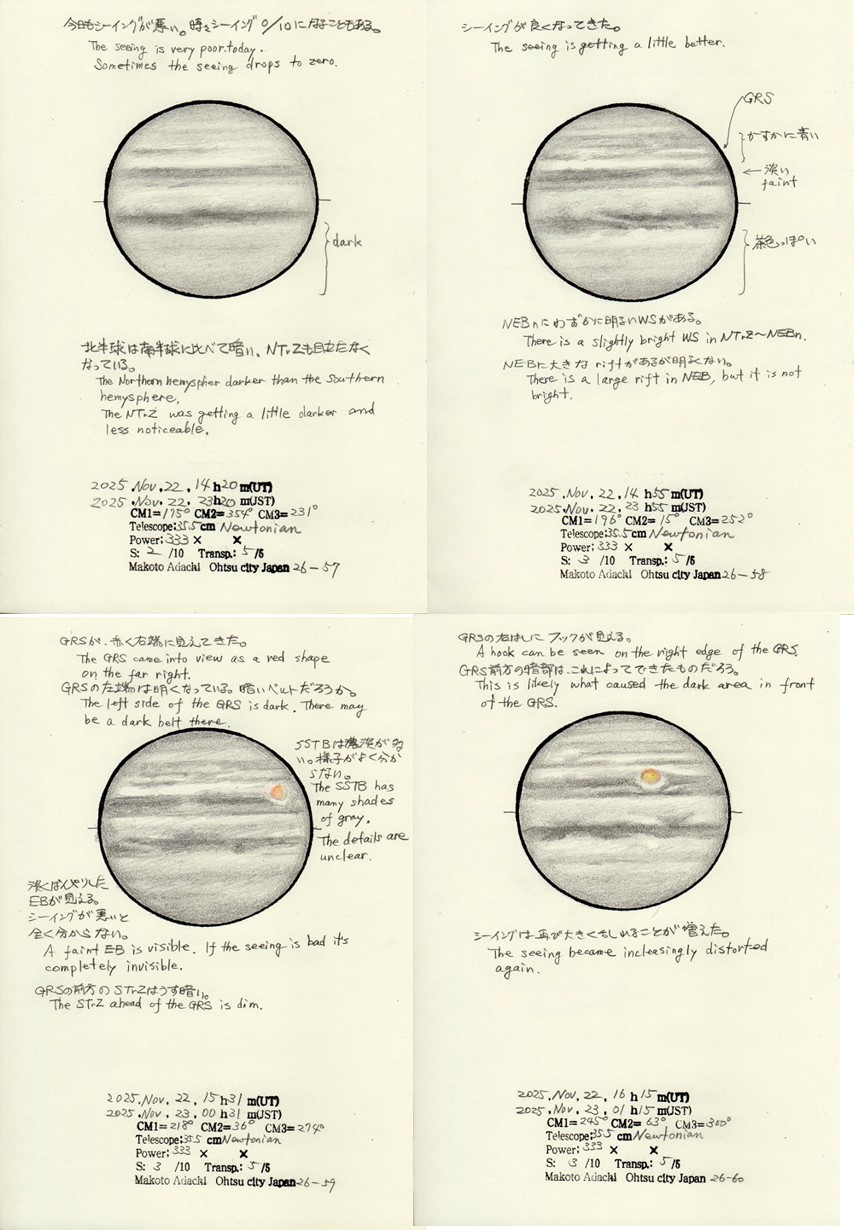 今日もシーイングが悪い。時々シーイング0/10になることもある。
The seeing is very poor today.
Sometimes the seeing drops to zero.
dark
北半球は南半球に比べて暗い。NTrZも目立たなく
なっている。
The Northern hemyspher darker than the Southern
hemysphere.
The NTrZ was getting a little darker and
less noticeable.
2025.Nov.22, 14 h20 m(UT)
2025.Nov.22, 23h20 m(JST)
CM1=175° CM2=354° CM3=231°
Telescope:35.5cm Newtonian
Power:333× ×
S: 2 /10 Transp.: 5/5
Makoto Adachi Ohtsu city Japan 26-57
シーイングが良くなってきた。
The seeing is getting a little better.
GRS
かすかに青い
淡い
faint
茶色っぽい
NEBnにわずかに明るいWSがある。
There is a slightly bright WS in NTrZ~NEBn.
NEBに大きなriftがあるが明るくない。
There is a large rift in NEB, but it is not
bright.
2025.Nov.22,14 h55 m(UT)
2025.Nov.22,23 h55 m(JST)
CM1=196° CM2=15° CM3=252°
Telescope:35.5cm Newtonian
Power:333 × ×
S: 3 /10 Transp.: 5/5
Makoto Adachi Ohtsu city Japan 26-58
GRSが、赤く右端に見えてきた。
The GRS came into view as a red shape
on the far right.
GRSの左端は明くなっている。暗いベルトだろうか。
The left side of the GRS is dark. There may
be a dark belt there.
SSTBは濃淡が多
い。様子がよく分か
らない。
The SSTB has
many shades
of gray.
The details are
unclear.
淡くぼんやりした
EBが見える。
シーイングが悪いと
全く分からない。
A faint EB is visible. If the seeing is bad it's
completely invisible.
GRSの前方のSTrZはうす暗い。
The STrZ ahead of the GRS is dim.
2025.Nov.22, 15 h31 m(UT)
2025.Nov.23, 00 h31 m(JST)
CM1=218° CM2=36° CM3=274°
Telescope:35.5 cm Newtonian
Power:333 × ×
S: 3 /10 Transp.: 5/5
Makoto Adachi Ohtsu city Japan 26-59
GRSの右はしにフックが見える。
A hook can be seen on the right edge of the GRS.
GRS前方の暗部は、これによってできたものだろう。
This is likely what caused the dark area in front
of the GRS.
シーイングは再び大きくもしれることが増えた。
The seeing became incleasingly distorted
again.
2025.Nov.22, 16 h15 m(UT)
2025.Nov.23, 01 h15 m(JST)
CM1=245° CM2=63° CM3=300°
Telescope:35.5 cm Newtonian
Power:333 × ×
S: 3 /10 Transp.: 5/5
Makoto Adachi Ohtsu city Japan 26-60